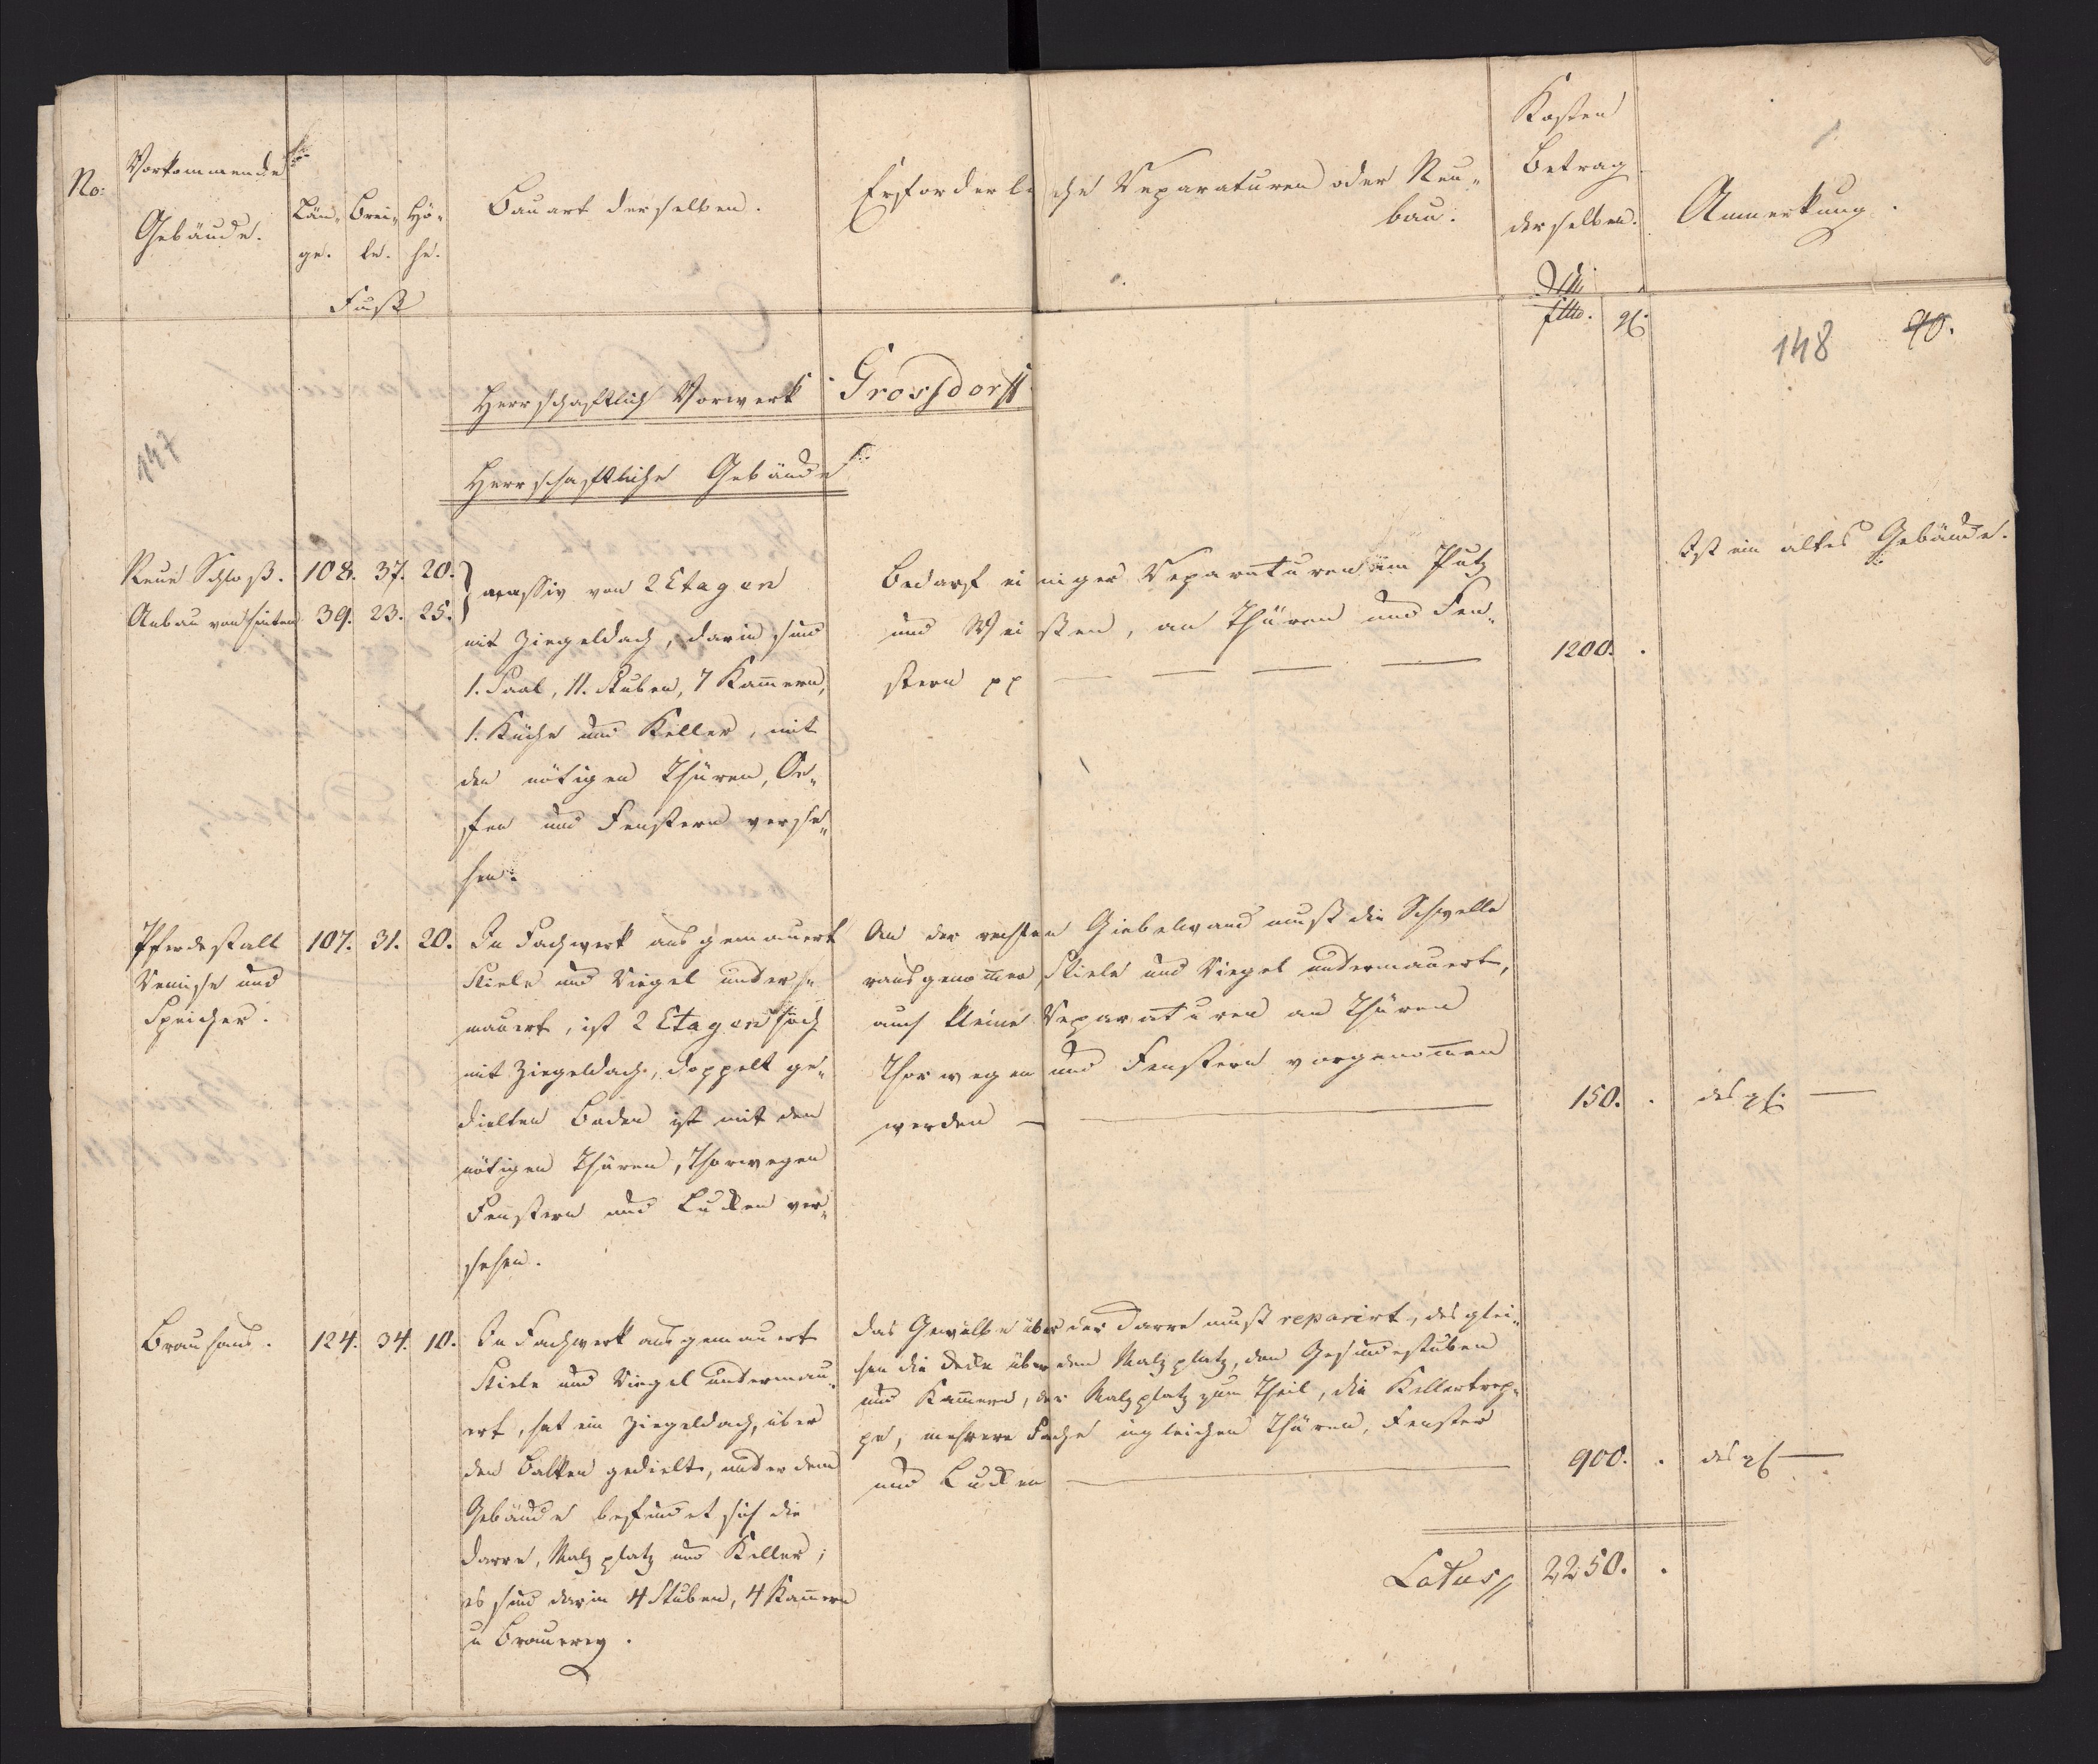 No:
Vorkommende
Gebäude.
Län- Brei- Hö-
ge. te. he.
Fuß
Bauart derselben.
Erforderliche Reparaturen oder Neu-
bau.
Kosten
Betrag
derselben.
Anmerkung.
148 90.
147
Herrschaftlich Vorwerk Grossdorff
Herrschaftliche Gebäude
Neue Schloß. 108. 37. 20.
Anbau von hinten 39. 23. 25.
massiv von 2 Etagen
mit Ziegeldach, darin sind
1. Saal, 11. Stuben, 7 Kam̅ern,
1. Küche und Keller, mit
den nötigen Thüren, Oe-
fen und Fenstern verse-
hen.
Bedarf einiger Reparaturen im Putz
und Weißen, an Thüren und Fen-
stern pp
1200.
Ist ein altes Gebäude.
Pferdestall 107. 31. 20.
Remise und
Speicher.
In Fachwerk ausgemauert
Stiele und Riegel unter-
mauert, ist 2 Etagen hoch
mit Ziegeldach, doppelt ge-
dielten Boden ist mit den
nötigen Thüren, Thorwegen
Fenstern und Lucken ver-
sehen.
An der rechten Giebelwand muß die Schwelle
rausgenom̅en, Stiele und Riegel untermauert,
auch kleine Reparaturen an Thüren
Thorwegen und Fenstern vorgenom̅en
werden
150.
desgl.
Brauhaus. 124. 34. 10.
In Fachwerk ausgemauert
Stiele und Riegel untermau-
ert, hat ein Ziegeldach, über
den Balken gedielt, unter dem
Gebäude befindet sich die
Darre, Malzplatz und Keller;
es sind darin 4 Stuben, 4 Kam̅ern
u Brauerey.
Das Gewölbe über der Darre muß reparirt, desglei-
chen die Decke über dem Malzplatz, den Gesindestuben
und Kam̅ern, der Malzplatz zum Theil, die Kellertrep-
pe, mehrere Fache ingleichen Thüren, Fenster
und Lucken
900.
desgl
Latus 2250.